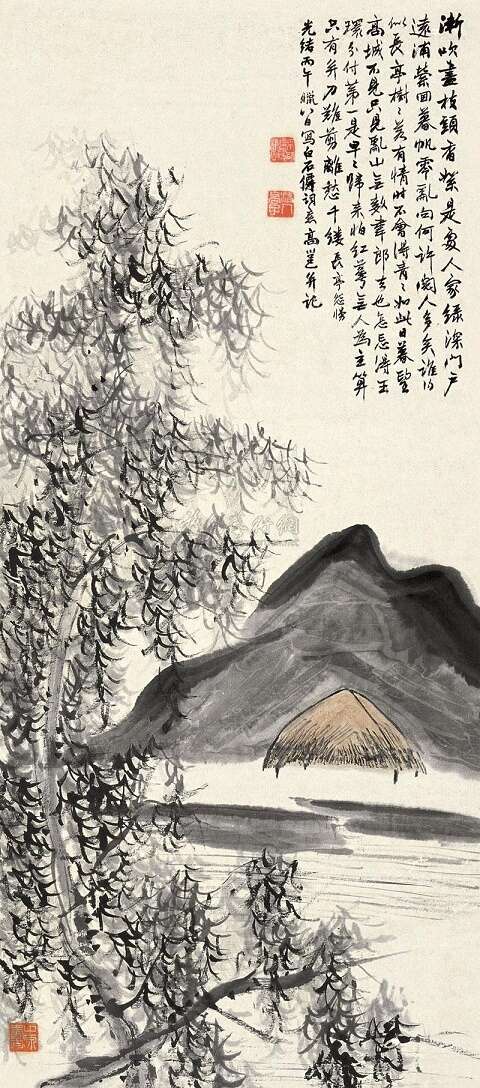 漸吹盡枝頭香絮是處人家綠深門戶
遠浦縈回暮帆零亂向何許閱人多矣誰得
似長亭樹々若有情時不會得青々如此日暮望
高城不見只見亂山无數韋郎去也怎忘得玉
環分付第一是早々歸來怕紅萼无人為主算
只有并刀難剪離愁千縷長亭怨慢
光緒丙午臘八日寫白石僊詞意高邕并記